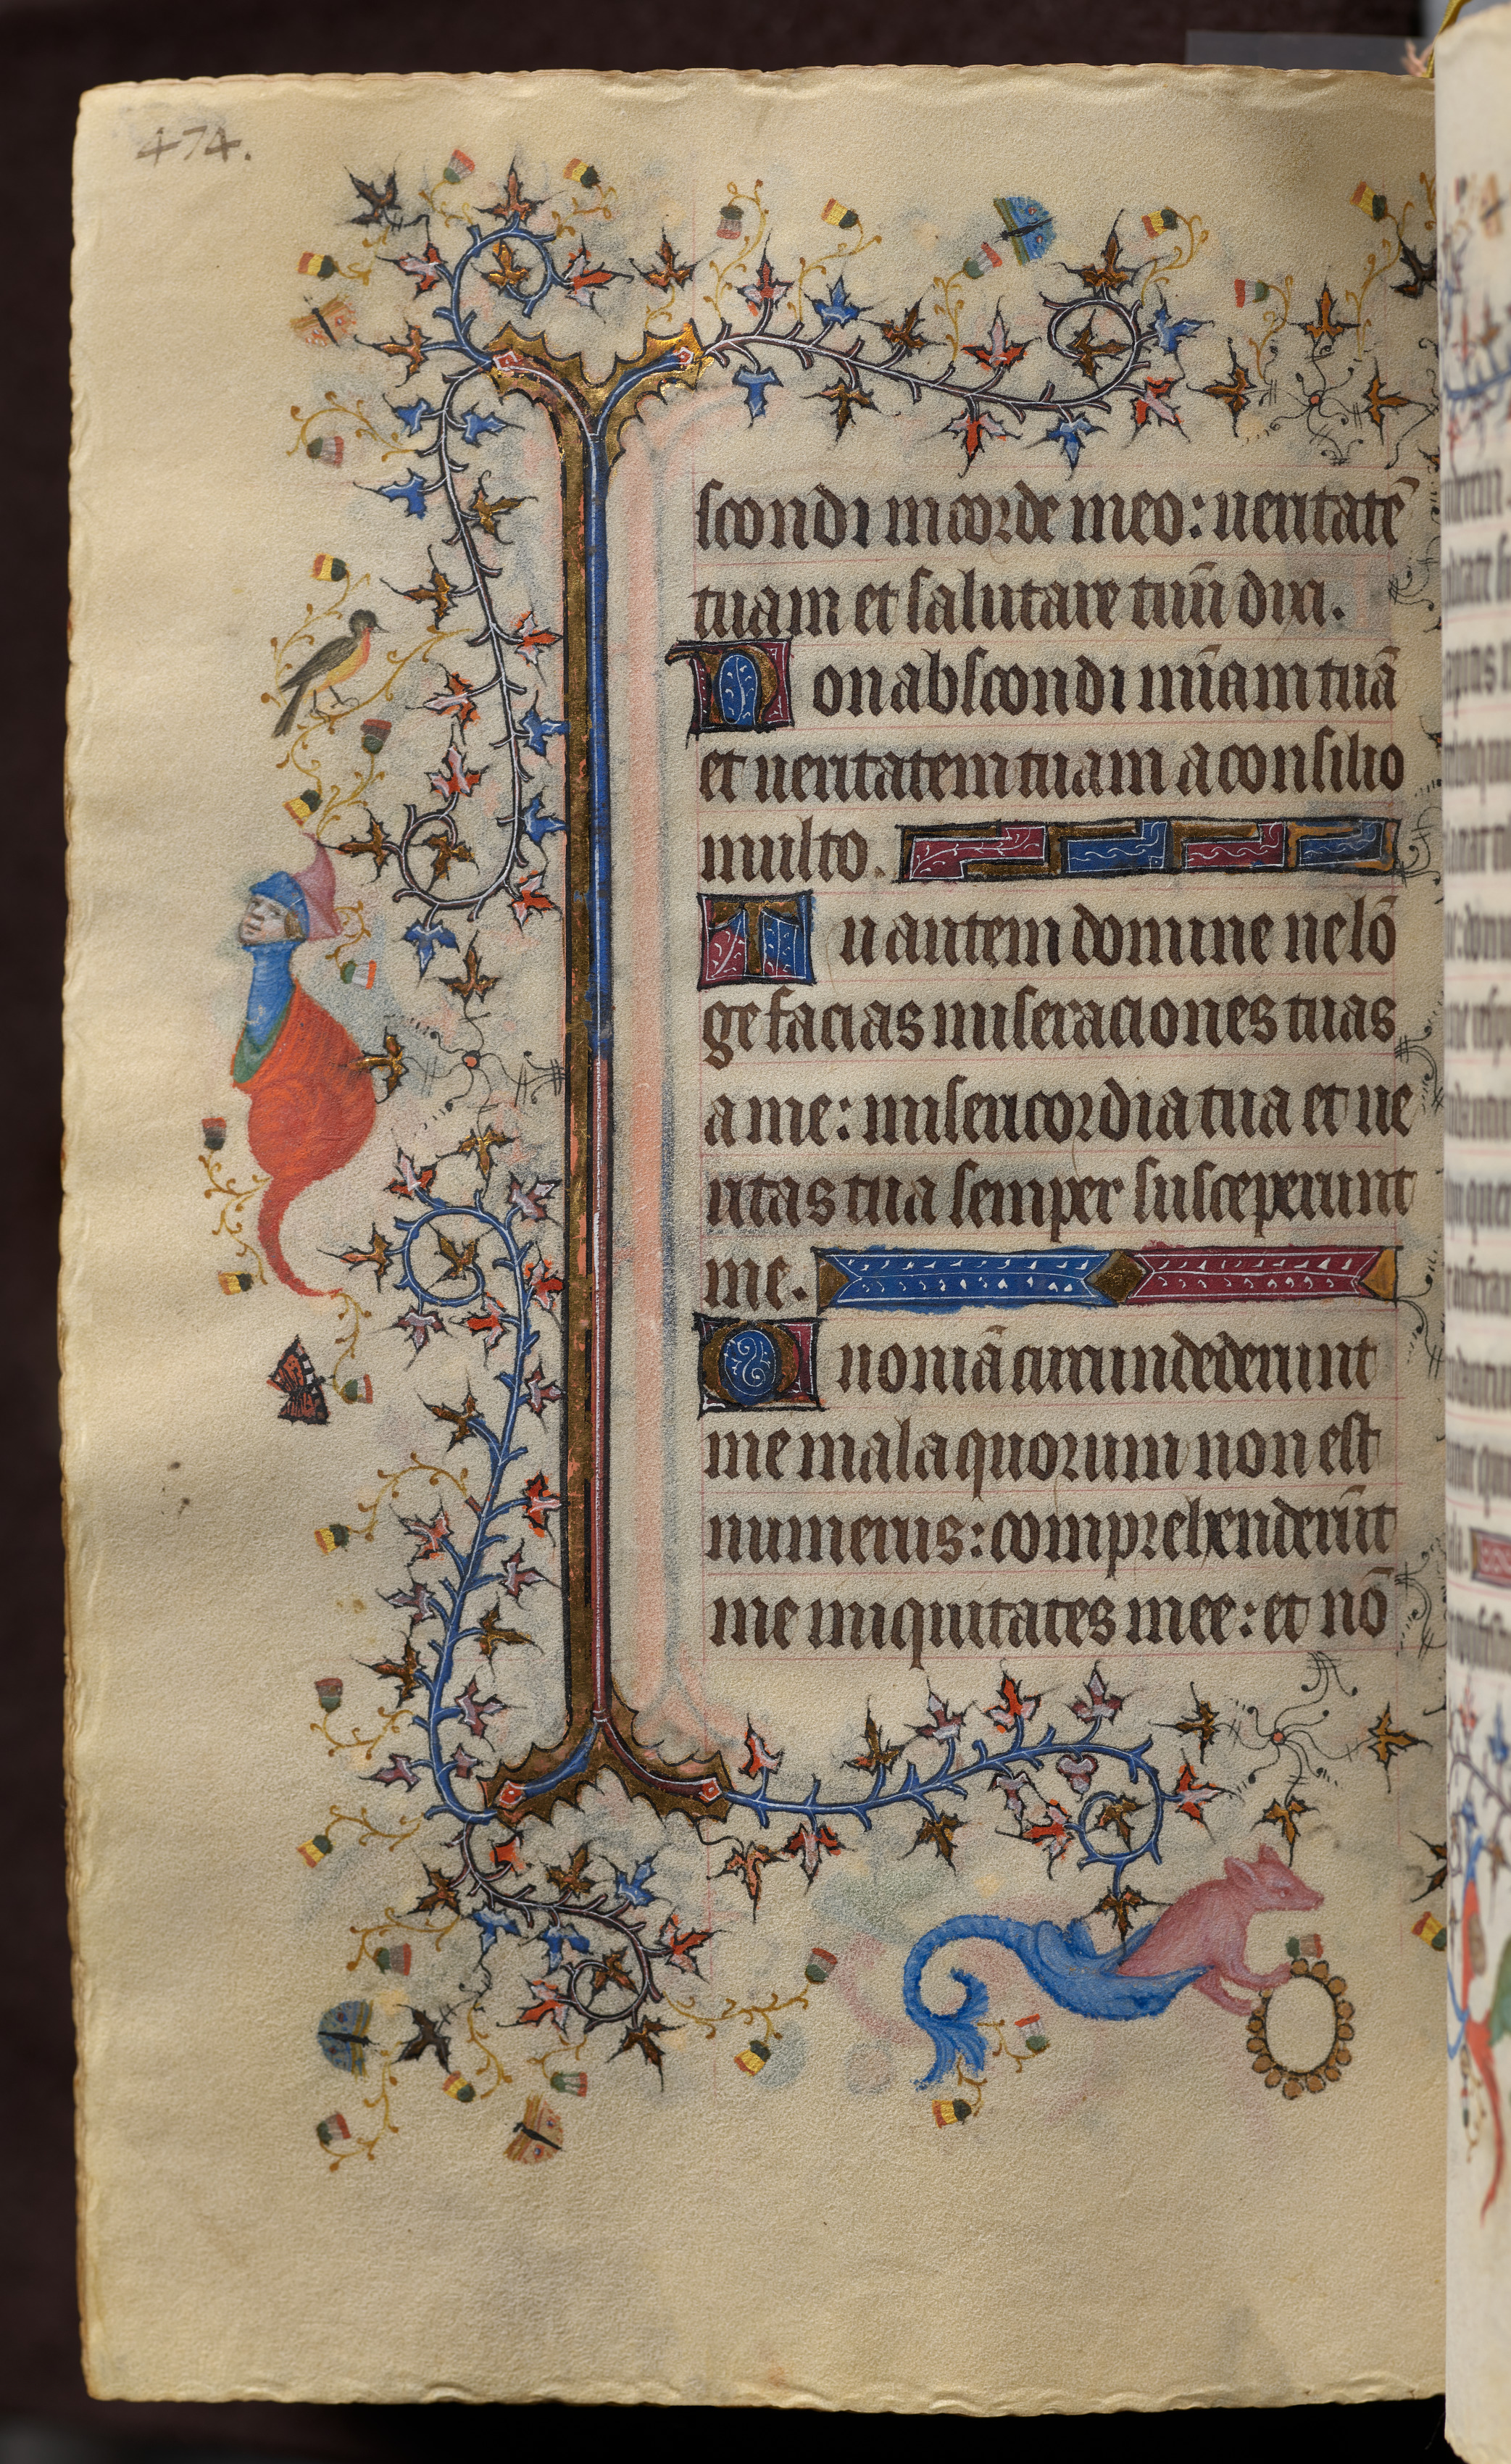 474.
scondi in corde meo: ueritatē
tuam et salutare tuū dixi.
Non abscondi mīam tuā
et ueritatem tuam a consilio
multo.
Tu autem domine ne lō
ge facias miseraciones tuas
a me: misericordia tua et ue
ritas tua semper susceperunt
me.
Quoniā circumdederunt
me mala quorum non est
numerus: comprehenderūt
me iniquitates mee: et nō